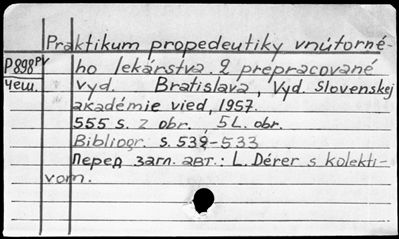 Praktikum propedeutiky vnútorné-
P898pv ho lekárstva. 2 prepracované
Чеш. vyd. Bratislava, Vyd. Slovenskej
akadémie vied, 1957.
555 s. z obr., 5 L. obr.
Bibliogr. s. 532-533
Перед загл. авт.: L. Dérer s kolekti-
vom.